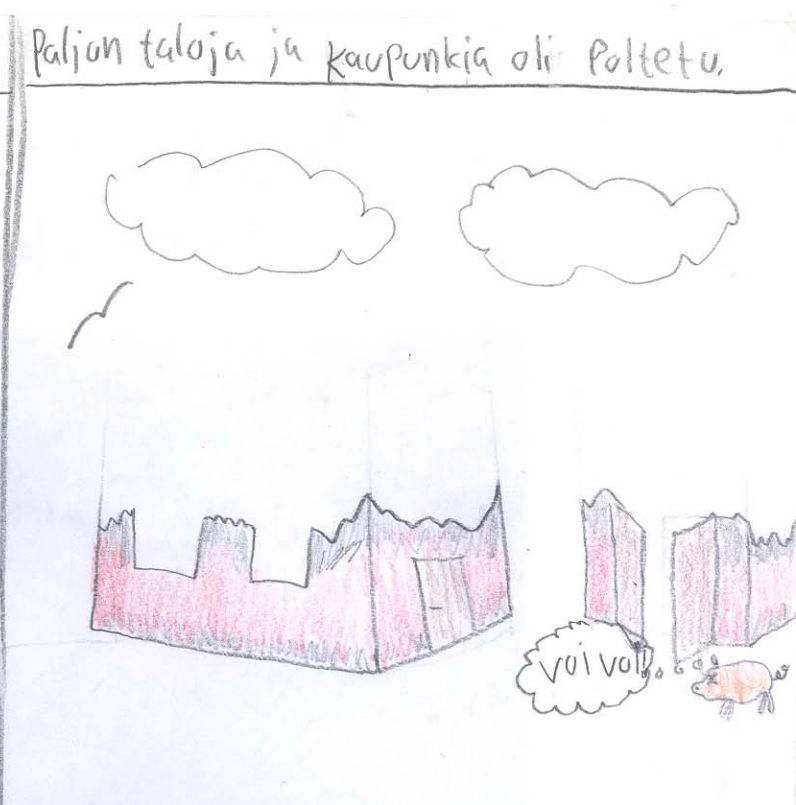 Paljon taloja ja kaupunkia oli Poltetu.
voi voi!